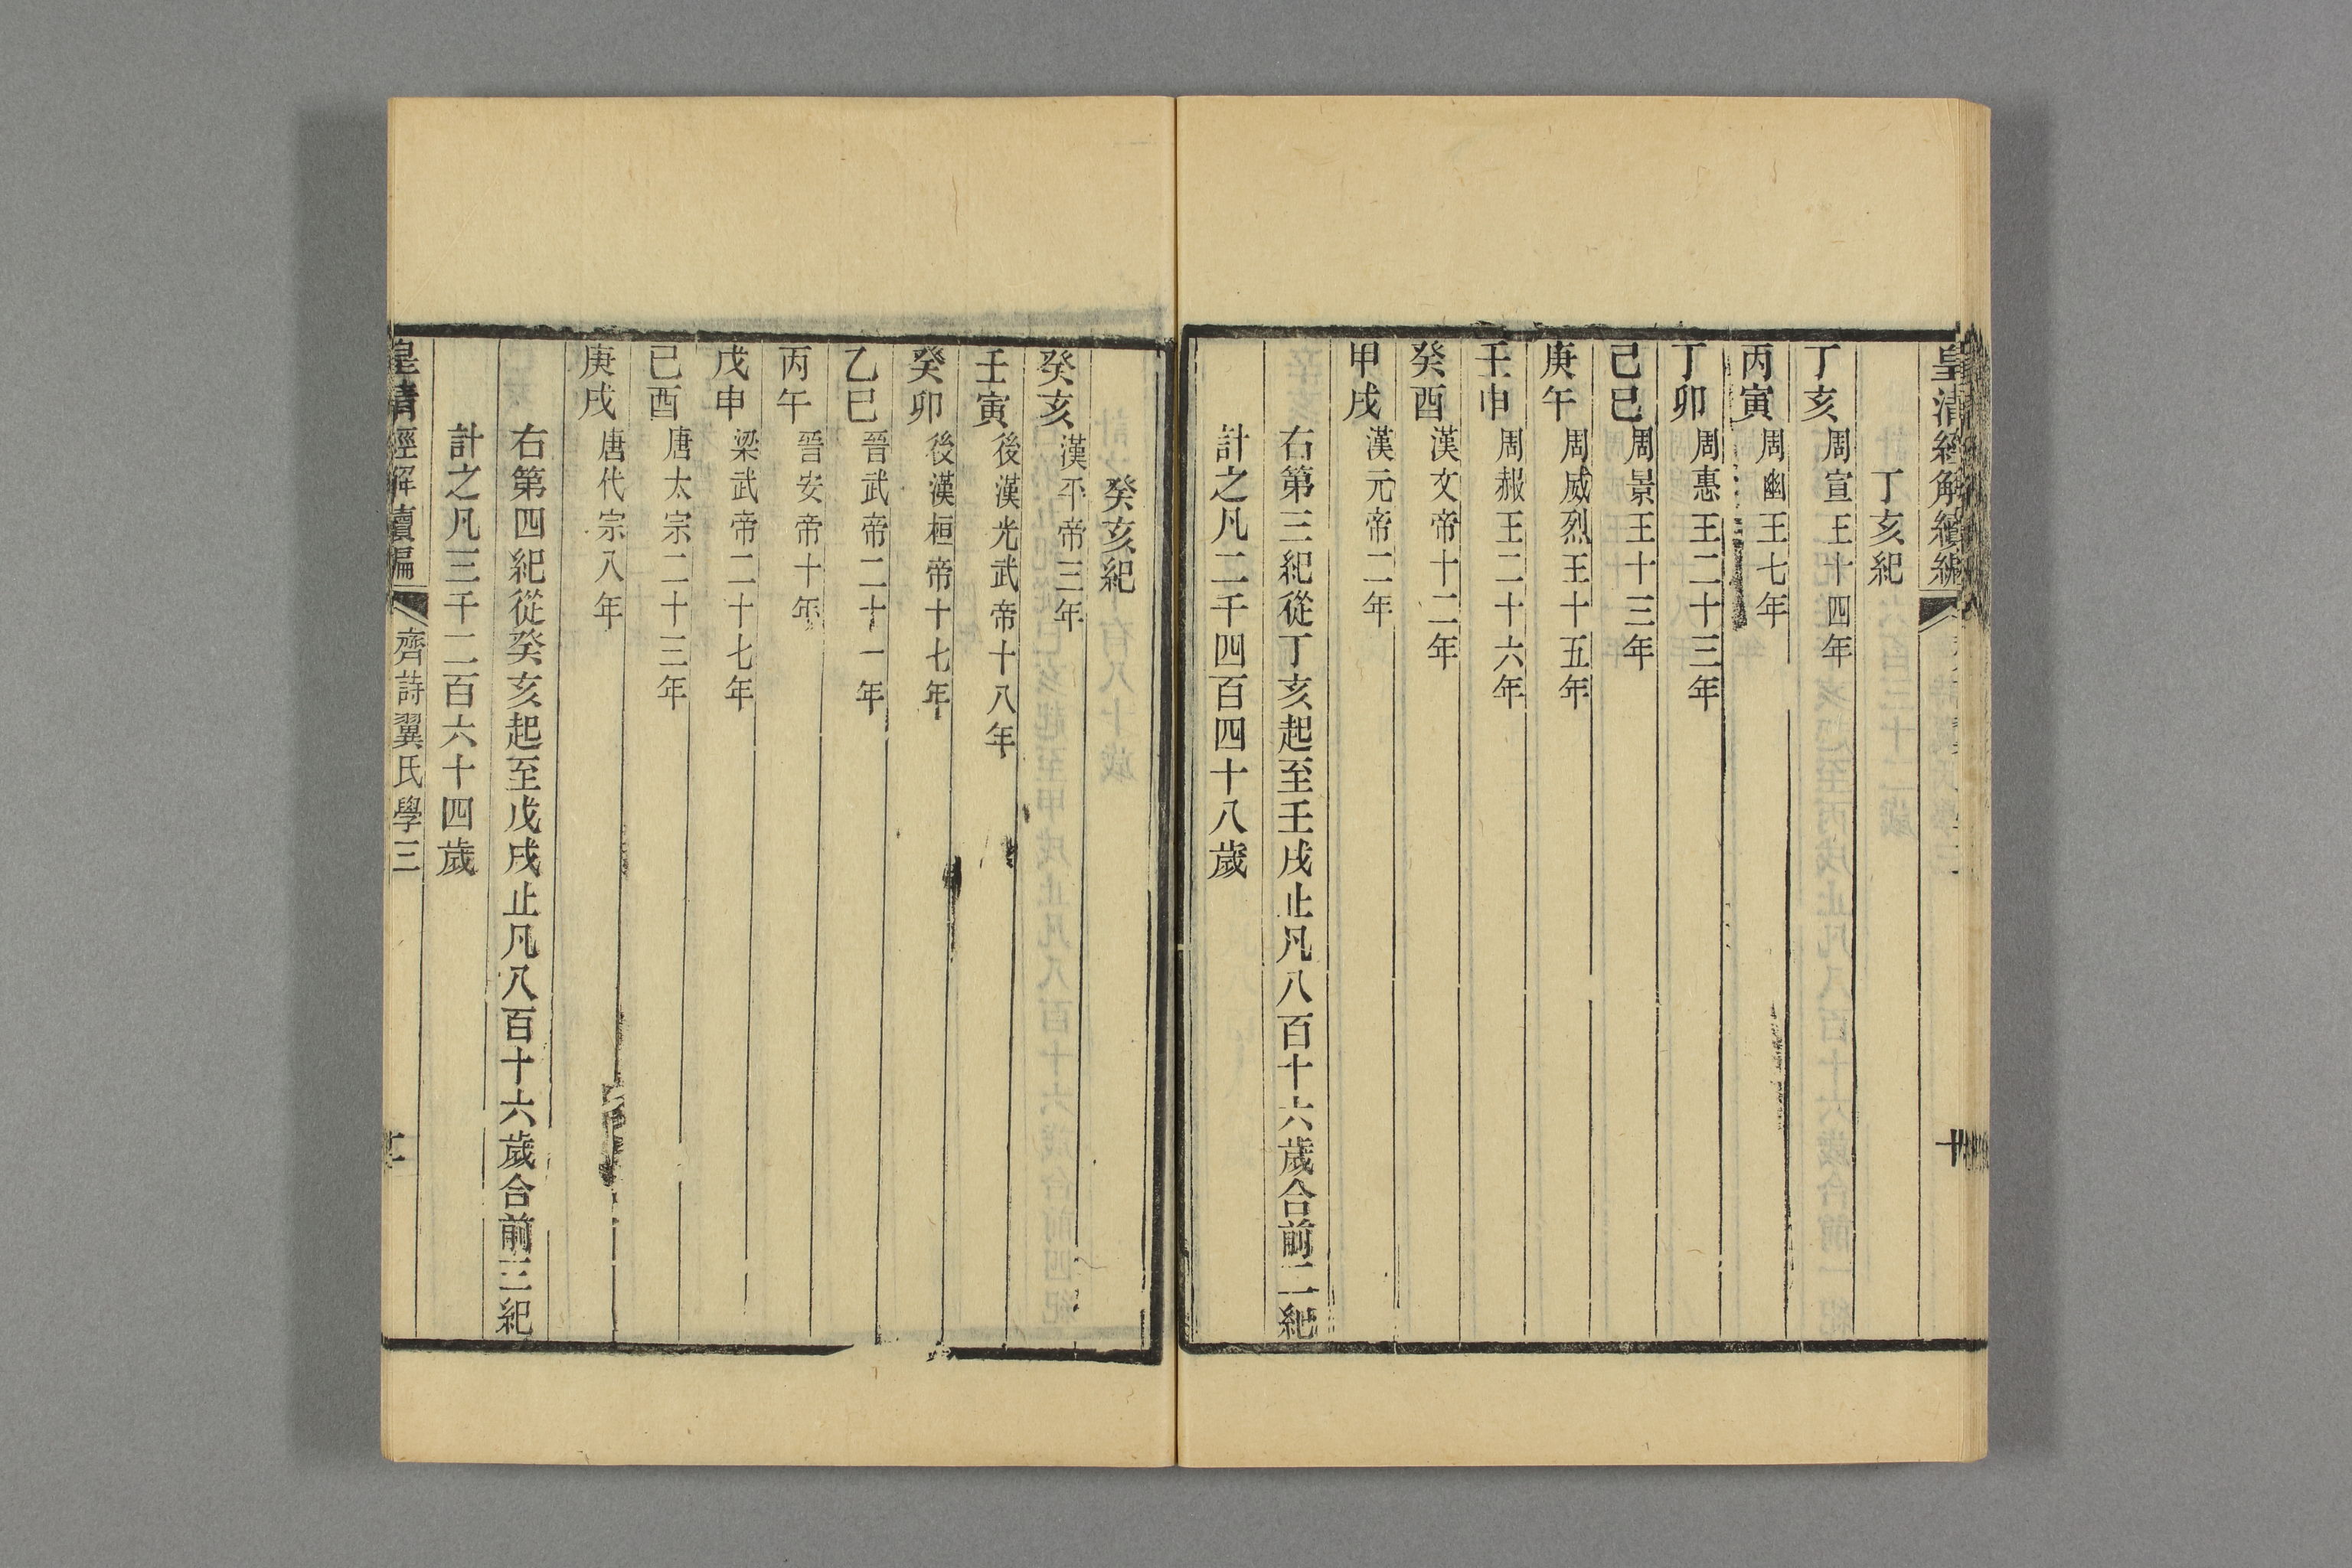 皇清經解續編
十
丁亥紀
丁亥 周宣王十四年
丙寅 周幽王七年
丁卯 周惠王二十三年
己巳 周景王十三年
庚午 周威烈王十五年
壬申 周赧王二十六年
癸酉 漢文帝十二年
甲戌 漢元帝二年
右第三紀從丁亥起至壬戌止凡八百十六歲合前二紀
計之凡二千四百四十八歲
癸亥紀
癸亥 漢平帝三年
壬寅 後漢光武帝十八年
癸卯 後漢桓帝十七年
乙巳 晉武帝二十一年
丙午 晉安帝十年
戊申 梁武帝二十七年
己酉 唐太宗二十三年
庚戌 唐代宗八年
右第四紀從癸亥起至戊戌止凡八百十六歲合前三紀
計之凡三千二百六十四歲
皇清經解續編 齊詩翼氏學三